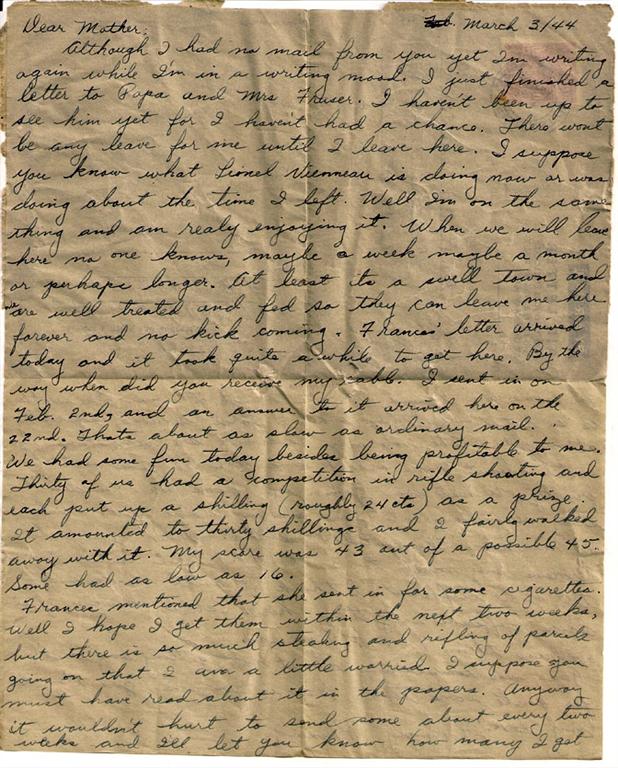 Dear Mother: Feb. March 3/44
Although I had no mail from you yet I'm writing
again while I'm in a writing mood. I just finished a
letter to Papa and Mrs Fraser. I haven't been up to
see him yet for I haven't had a chance. There wont
be any leave for me until I leave here. I suppose
you know what Lionel Vienneau is doing now or was
doing about the time I left. Well I'm on the same
thing and am realy enjoying it. When we will leave
here no one knows, maybe a week maybe a month
or perhaps longer. At least its a swell town and
we are well treated and fed so they can leave me here
forever and no kick coming. Frances' letter arrived
today and it took quite a while to get here. By the
way when did you receive my cable. I sent it on
Feb. 2nd, and an answer to it arrived here on the
22nd. Thats about as slow as ordinary mail.
We had some fun today besides being profitable to me.
Thirty of us had a competition in rifle shooting and
each put up a shilling (roughly 24 cts) as a prize.
It amounted to thirty shillings and I fairly walked
away with it. My score was 43 out of a possible 45.
Some had as low as 16.
Frances mentioned that she sent in for some cigarettes.
Well I hope I get them within the next two weeks,
but there is so much stealing and rifling of parcels
going on that I am a little worried. I suppose you
must have read about it in the papers. Anyway
it wouldn't hurt to send some about every two
weeks and I'll let you know how many I get